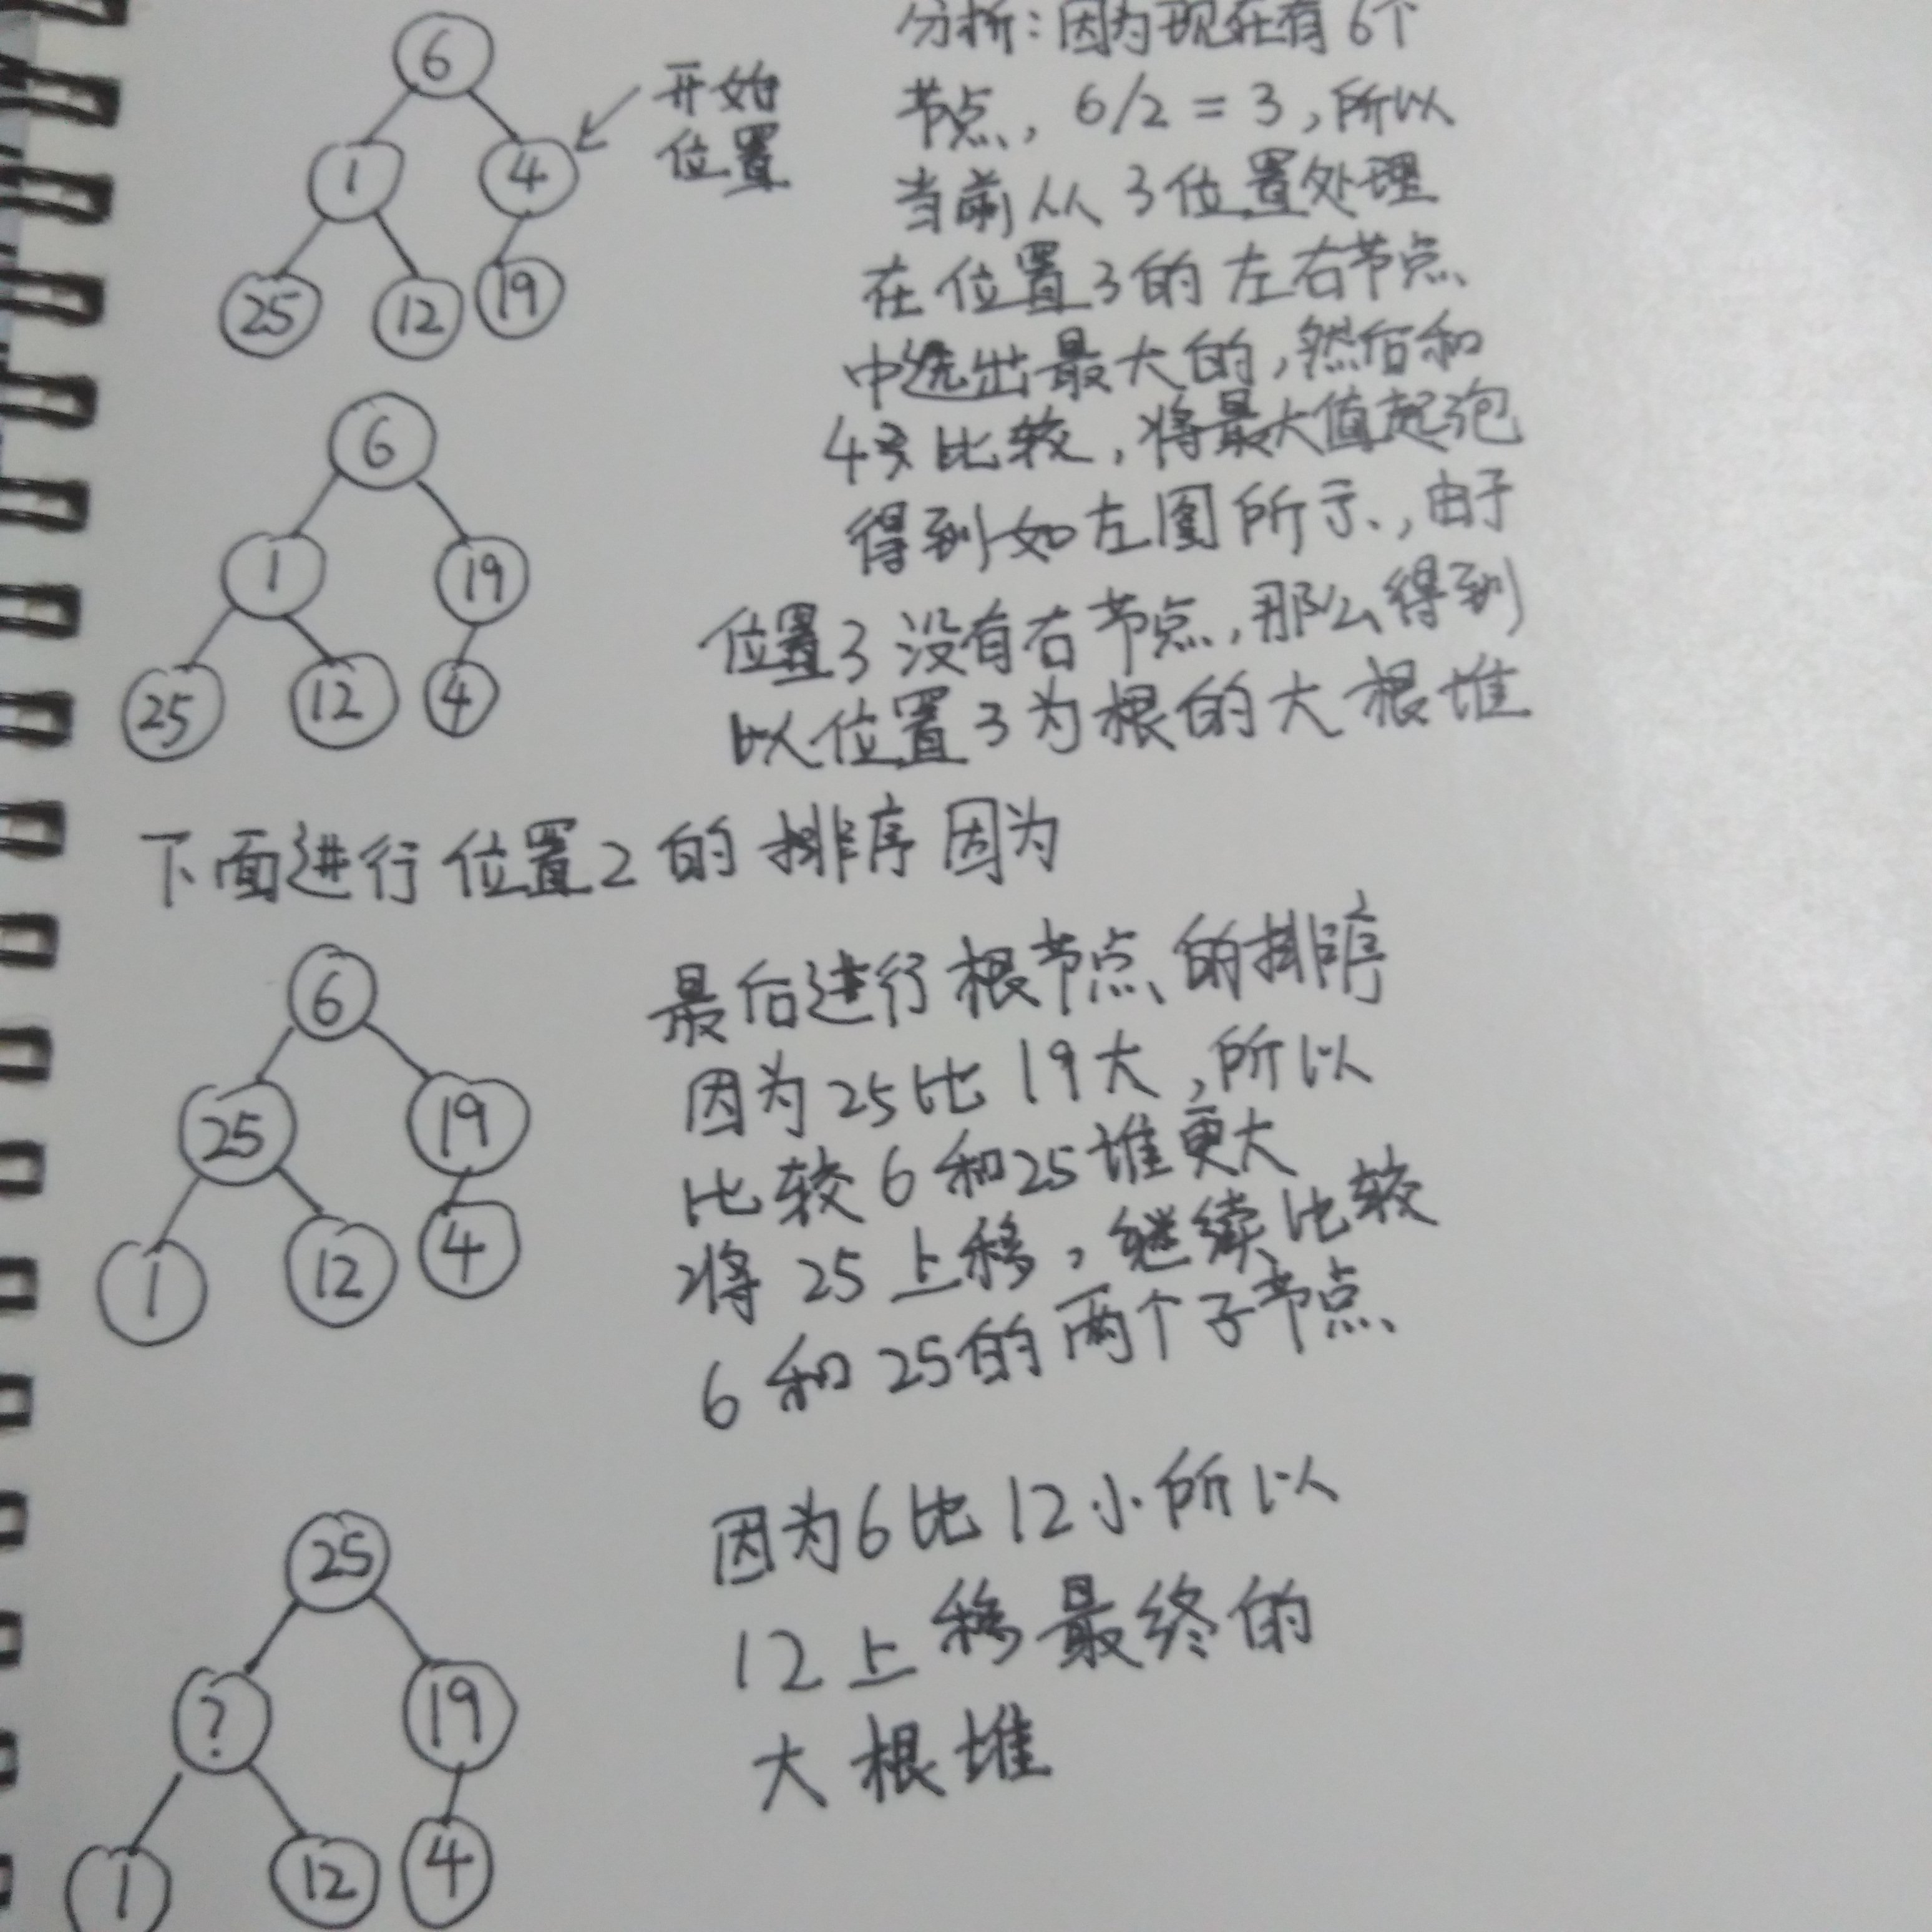 6
开始
位置
1
4
25
12
19
分析：因为现在有6个
节点，6/2=3，所以
当前从3位置处理
在位置3的左右节点
中选出最大的，然后和
4号比较，将最大值起泡
得到如左图所示，由于
位置3没有右节点，那么得到
以位置3为根的大根堆
6
1
19
25
12
4
下面进行位置2的排序因为
6
25
19
1
12
4
最后进行根节点的排序
因为25比19大，所以
比较6和25堆更大
将25上移，继续比较
6和25的两个子节点
25
?
19
1
12
4
因为6比12小所以
12上移最终的
大根堆